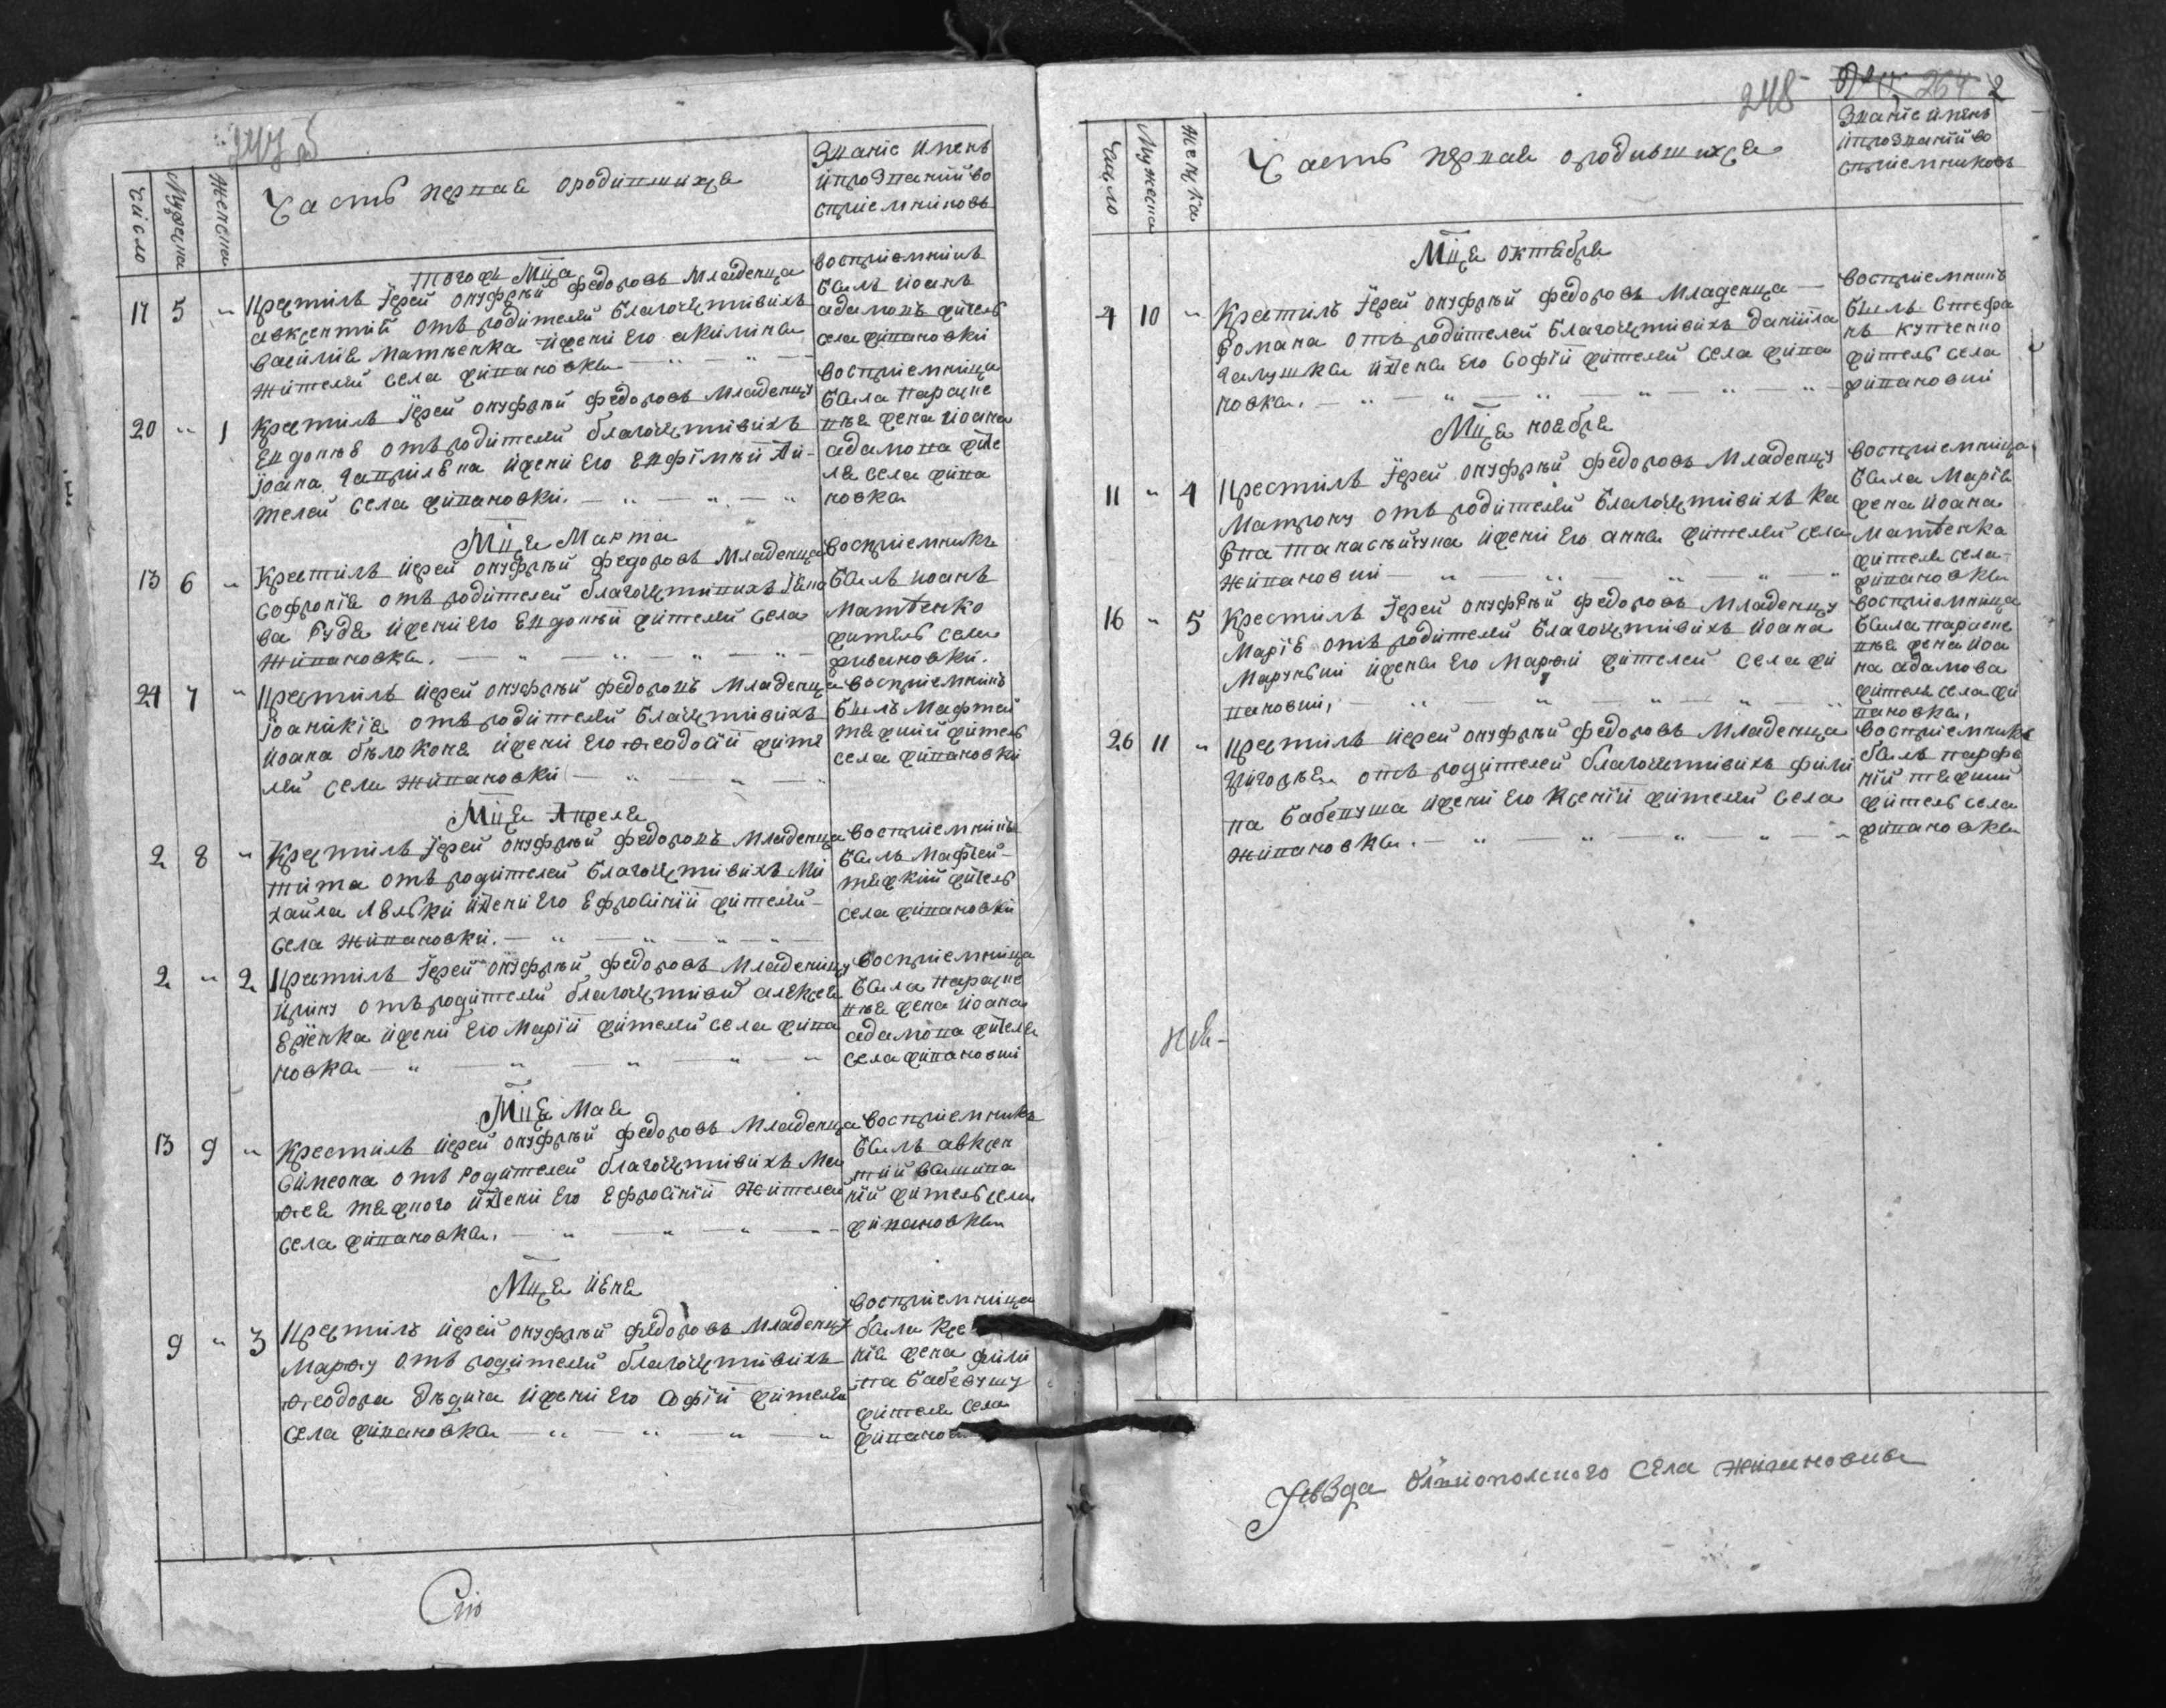 247 об
Число
Мужеска
Женска
Часть первая ородившихся
Званіе имень
ипрозваній во
спріемниковъ
Тогожъ Мца
17 5 " Крестилъ Іерей онуфрій федоровъ Младенца
авксентий отъ родителей благочестивихъ
василия Матвенка ижени его акилины
жителей села живановки — " — " —
восприемникъ
былъ иоанъ
адамовъ житель
села живановки
20 " 1 Крестилъ Іерей онуфрий федоровъ Младенцу
Евдокию отъ родителей благочестивихъ
іоана гаврилена ижени его Евфимий жи-
телей села живановки. — " — " — "
восприемница
была параске
вия жена иоана
адамова жите
ля села жива
новки
Мця Марта
13 6 " Крестилъ иерей онуфрий федоровъ Младенца
Софрония отъ родителей благочестивихъ
ва Рудя ижени его Евдокий жителей села
живановки. — " — " — " — " —
восприемникъ
былъ иоанъ
Матвенко
житель села
живановки.
24 7 " Крестилъ иерей онуфрий федоровъ Младенца
Іоаникія отъ родителей благочестивихъ
иоана бѣлоконя ижени его Ѳеодосий жите
лей села живановки — " — " — "
восприемникъ
былъ Мафтей
тяжкий житель
села живановки
Мця Апреля
2 8 " Крестилъ Іерей онуфрий федоровъ Младенца
тита отъ родителей благочестивихъ Ми
хаила Лялки ижени его Ефросиний жителей-
села живановки. — " — " — " — " —
восприемникъ
былъ Мафтей-
тяжкий житель
села живановки
2 " 2 Крестилъ Іерей онуфрий федоровъ Младеницу
ирину отъ родителей благочестивих алексея
ерienка ижени его Марий жителей села жива
новки — " — " — " — " — "
восприемница
была параске
вия жена иоана
адамова жителя
села живановки
Мця Мая
13 9 " Крестилъ иерей онуфрий федоровъ Младенца
Симеона отъ Родителей благочестивихъ Ма
ѳея тяжкого ижени его Ефросиний жителей
села живановки. — " — " — " — " —
восприемникъ
былъ авксен
тий
житель села
живановки
Мця июня
9 " 3 Крестилъ иерей онуфрий федоровъ Младенцу
Марѳу отъ родителей благочестивихъ
Ѳеодора дѣдича ижени его софий жителей
села живановки — " — " — " — "
восприемница
была
ния жена фили
па бабевушу
жителя села
живанов
Сию
248
264 2
Число
Мужеска
Женска
Часть первая ородившихся
Званіе имень
ипрозваній во
спріемниковъ
Мця октября
4 10 " Крестилъ Іерей онуфрий федоровъ Младенца —
Романа отъ родителей благочестивихъ даниила
галушки ижены его Софий жителей села жива
новки. — " — " — " — " — " —
восприемникъ
былъ Стефа
нъ купченко
житель села
живановки
Мця ноября
11 " 4 Крестилъ Іерей онуфрий федоровъ Младенцу
Матрону отъ родителей благочестивихъ ка
ижени его анны жителей села
живановки — " — " — " — " — "
восприемница
была Мария
жена иоана
Матвенка
жителя села-
живановки
16 " 5 Крестилъ Іерей онуфрий федоровъ Младенцу
Марiю отъ родителей благочестивихъ иоана
ижены его Марфи жителей села жи
вановки, — " — " — " — " — "
восприемница
была параске
вия жена иоа
на адамова
жителя села жи
вановки,
26 11 " Крестилъ иерей онуфрий федоровъ Младенца
Григория отъ родителей благочестивихъ фили
па бабевуша ижени его Ксений жителей села
живановки. — " — " — " — " — "
восприемникъ
былъ парфе
ний тяжкий
житель села
живановки
Уѣзда Ольгопольского села живановки